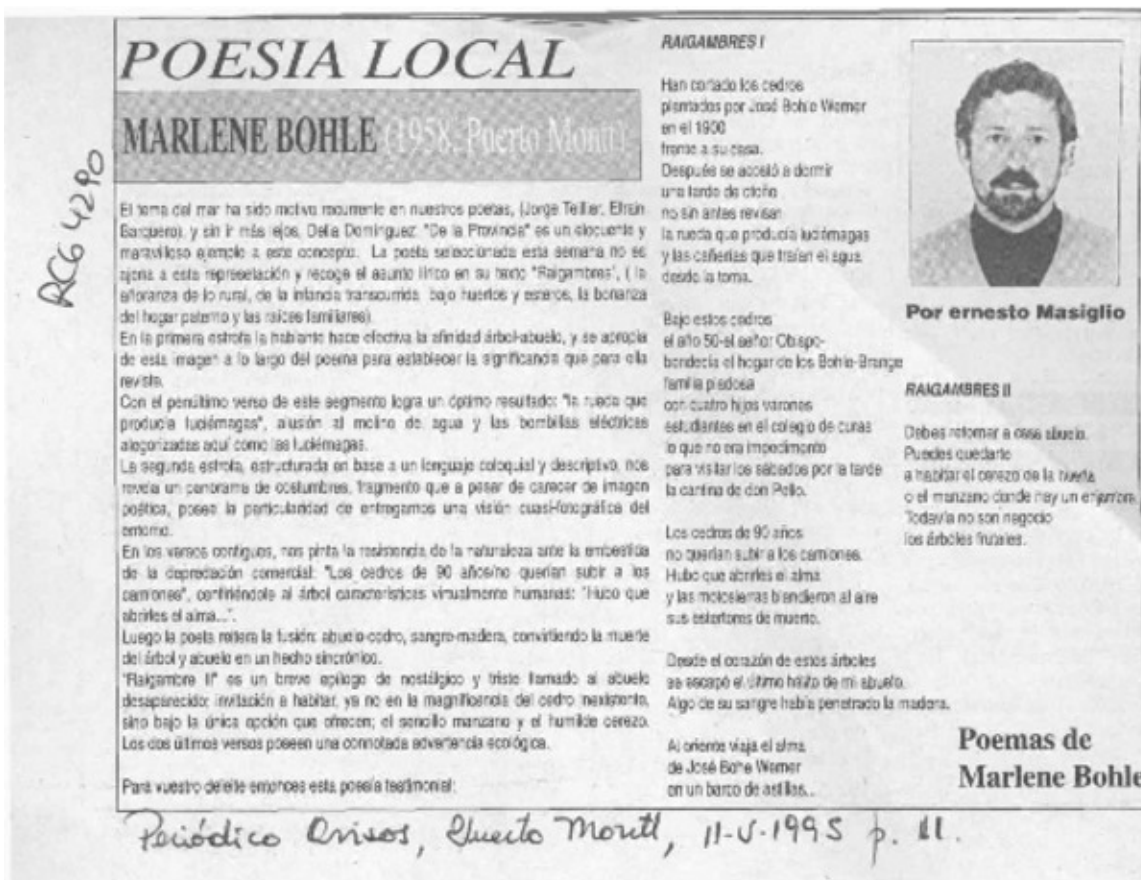 POESIA LOCAL
MARLENE BOHLE (1958. Puerto Montt)
El tema del mar ha sido motivo recurrente en nuestros poetas, (Jorge Teillier, Efraín
Barquero), y sin ir más lejos, Delia Domínguez. "De la Provincia" es un elocuente y
maravilloso ejemplo a este concepto. La poeta seleccionada esta semana no es
ajena a esta representación y recoge el asunto lírico en su texto "Raigambres", ( la
añoranza de lo rural, de la infancia transcurrida bajo huertos y esteros, la bonanza
del hogar paterno y las raíces familiares).
En la primera estrofa la hablante hace efectiva la afinidad árbol-abuelo, y se apropia
de esta imagen a lo largo del poema para establecer la significancia que para ella
reviste.
Con el penúltimo verso de este segmento logra un óptimo resultado: "la rueda que
producía luciérnagas", alusión al molino de agua y las bombillas eléctricas
alegorizadas aquí como las luciérnagas.
La segunda estrofa, estructurada en base a un lenguaje coloquial y descriptivo, nos
revela un panorama de costumbres, fragmento que a pesar de carecer de imagen
poética, posee la particularidad de entregarnos una visión cuasi-fotográfica del
entorno.
En los versos contiguos, nos pinta la resistencia de la naturaleza ante la embestida
de la depredación comercial: "Los cedros de 90 años/no querían subir a los
camiones", confiriéndole al árbol características virtualmente humanas: "Hubo que
abrirles el alma...".
Luego la poeta reitera la fusión: abuelo-cedro, sangre-madera, convirtiendo la muerte
del árbol y abuelo en un hecho sincrónico.
"Raigambre II" es un breve epílogo de nostálgico y triste llamado al abuelo
desaparecido: invitación a habitar, ya no en la magnificencia del cedro inexistente,
sino bajo la única opción que ofrecen; el sencillo manzano y el humilde cerezo.
Los dos últimos versos poseen una connotada advertencia ecológica.
Para vuestro deleite entonces esta poesía testimonial:
RAIGAMBRES I
Han cortado los cedros
plantados por José Bohle Werner
en el 1900
frente a su casa.
Después se acostó a dormir
una tarde de otoño
no sin antes revisar
la rueda que producía luciérnagas
y las cañerías que traían el agua
desde la toma.
Bajo estos cedros
el año 50-el señor Obispo-
bendecía el hogar de los Bohle-Brange
familia piadosa
con cuatro hijos varones
estudiantes en el colegio de curas
lo que no era impedimento
para visitar los sábados por la tarde
la cantina de don Pollo.
Los cedros de 90 años
no querían subir a los camiones.
Hubo que abrirles el alma
y las motosierras blandieron al aire
sus estertores de muerte.
Desde el corazón de estos árboles
se escapó el último hálito de mi abuelo.
Algo de su sangre había penetrado la madera.
Al oriente viaja el alma
de José Bohe Werner
en un barco de astillas...
Por ernesto Masiglio
RAIGAMBRES II
Debes retornar a casa abuelo.
Puedes quedarte
a habitar el cerezo de la huerta
o el manzano donde hay un enjambre
Todavía no son negocio
los árboles frutales.
Poemas de
Marlene Bohle
RCG 4290
Periódico Avisos, Puerto Montt, 11-V-1995 p. 11.